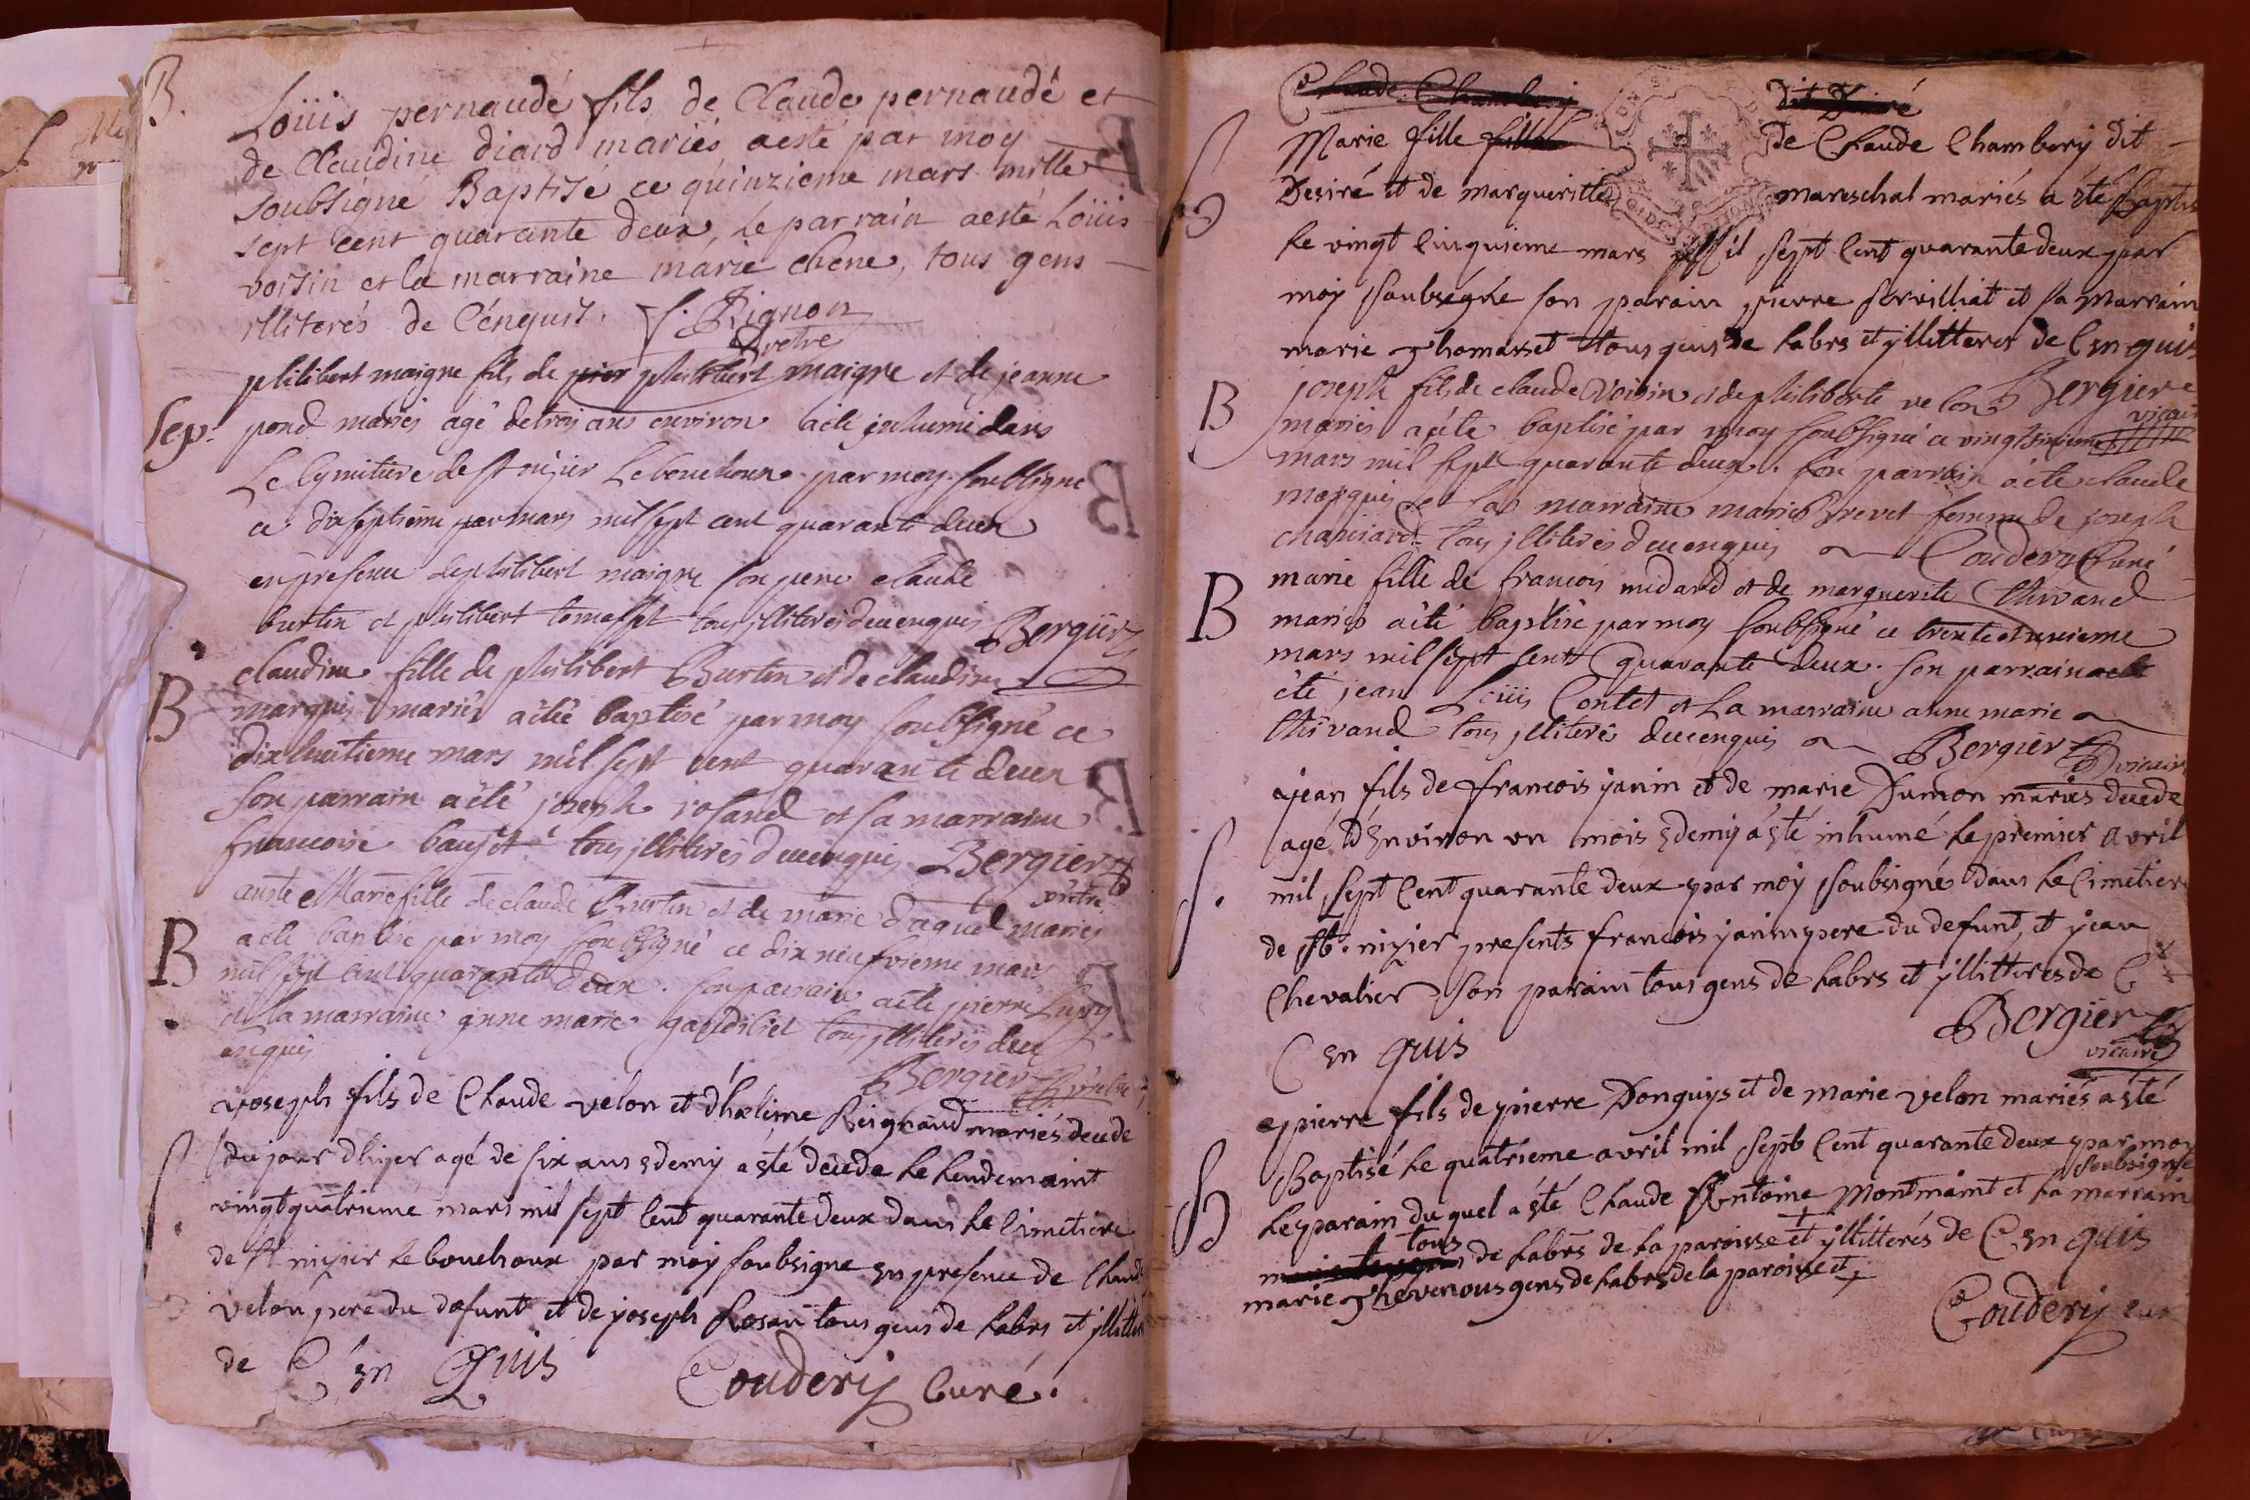 B.
Loüis pernaudé fils de Claude pernaudé et
de Claudine diard mariés aesté par moy
soubsigné Baptisé ce quinzieme mars mille
sept cent quarante deux, le parrain aesté Loüis
voisin et la marraine marie chene, tous gens
illiterés de Cénquis. Rignon
pretre
philibert maigre fils de philibert maigre et de jeanne
Sep. pond mariés agé de trois ans environ aeté inhumé dans
Le Cymitiere de st nizier Le bouchoux par moy soubsigné
ce dixseptieme mars mil sept cent quarante deux
en presence de philibert maigre son pere claude
burtin et philibert tomasset tous illiterés de cenquis Bergier
claudine fille de philibert Burtin et de claudine
B marquis mariés aété baptisé par moy soubsigné ce
dixhuitieme mars mil sept cent quarante deux
son parrain aété joseph roland et sa marraine
francoise tous illiterés de cenquis Bergier
Marie fille de claude Burtin et de marie mariés
B aeté baptisé par moy soubsigné ce dix neufvieme mars
mil sept cent quarante deux. son parrain aeté pierre
et la marraine anne marie tous illiterés de
enquis
Bergier
joseph fils de Claude velon et Reignaud mariés decede
S. du jour d'hyer agé de six ans & demy a été le lendemaint
vingt quatrieme mars mil sept Cent quarante deux dans le Cimetiere
de st nizier le bouchoux par moy soubsigne en presence de Claude
velon pere du defunt et de joseph tous gens de labrs et yllitter
de Cenquis Couderij Curé.
Marie fille De Claude Chambery dit
B Desiré et de margueritte mareschal mariés a été Baptisé
le vingt Cinquieme mars Mil sept Cent quarante deux par
moy soubsegné son parain pierre servilliat et sa Marrain
marie Thomasset tous gens de labrs et yllitterés de Cenquis
Bergier
vicaire
B joseph fils de claude voisin et de philiberte velon
mariés aéte baptisé par moy soubsigné ce vingtsixieme
mars mil sept quarante deux. son parrain aété claude
marquis et la marraine marie Brevet femme de joseph
tous illiterés de cenquis Couderij Curé
marie fille de francois midand et de marguerite thivand
B mariés aété baptisé par moy soubsigné ce trente et unieme
mars mil sept cent quarante deux. son parrain
été jean Loüis Contet et La marraine anne marie
thivand tous illiterés de cenquis Bergier vicaire
jean fils de francois janin et de marie Dumon mariés decede
agé D'Environ un mois & demy a été inhumé le premier avril
S. mil sept Cent quarante deux par moy soubsigné dans le Cimetiere
de st. nizier presents francois janin pere du defunt, et jean
Chevalier son parain tous gens de labrs et yllitterés de C
Cenquis Bergier
vicaire
pierre fils de pierre Donguys et de marie velon mariés a été
B Baptisé le quatrieme avril mil sept Cent quarante deux par moy
soubsigné
le parain duquel a été Claude Antoine Montmaint et la marrain
tous de labrs de la paroisse et yllitterés de Cenquis
marie Thevenous gens de labrs de la paroisse et
Couderij cur